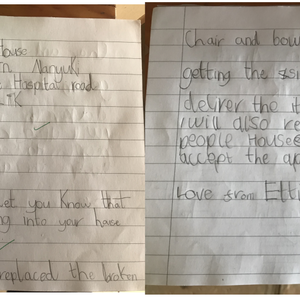 House
Nanyuki
Hospital road
let you know that
ing into your
replaced the broken
Chair and bow
getting the
deliver the
I will also re
people House
accept the ap
Love from